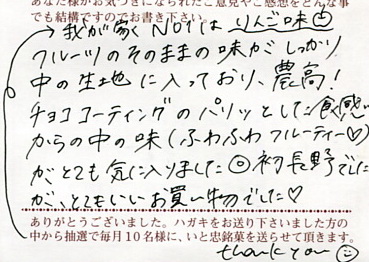 あなた様がお気づきになられたご意見やご感想をどんな事
でも結構ですのでお書き下さい。
→我が家 NO1は りんご味
フルーツのそのままの味がしっかり
中の生地に入っており、農高!
チョココーティングのパリッとした食感
からの中の味(ふわふわフルーティー♡)
が、とても気に入りました◎初長野でした
が、とてもいいお買い物でした♡
ありがとうございました。ハガキをお送り下さいました方の
中から抽選で毎月10名様に、いと忠銘菓を送らせて頂きます。
thank you ☺